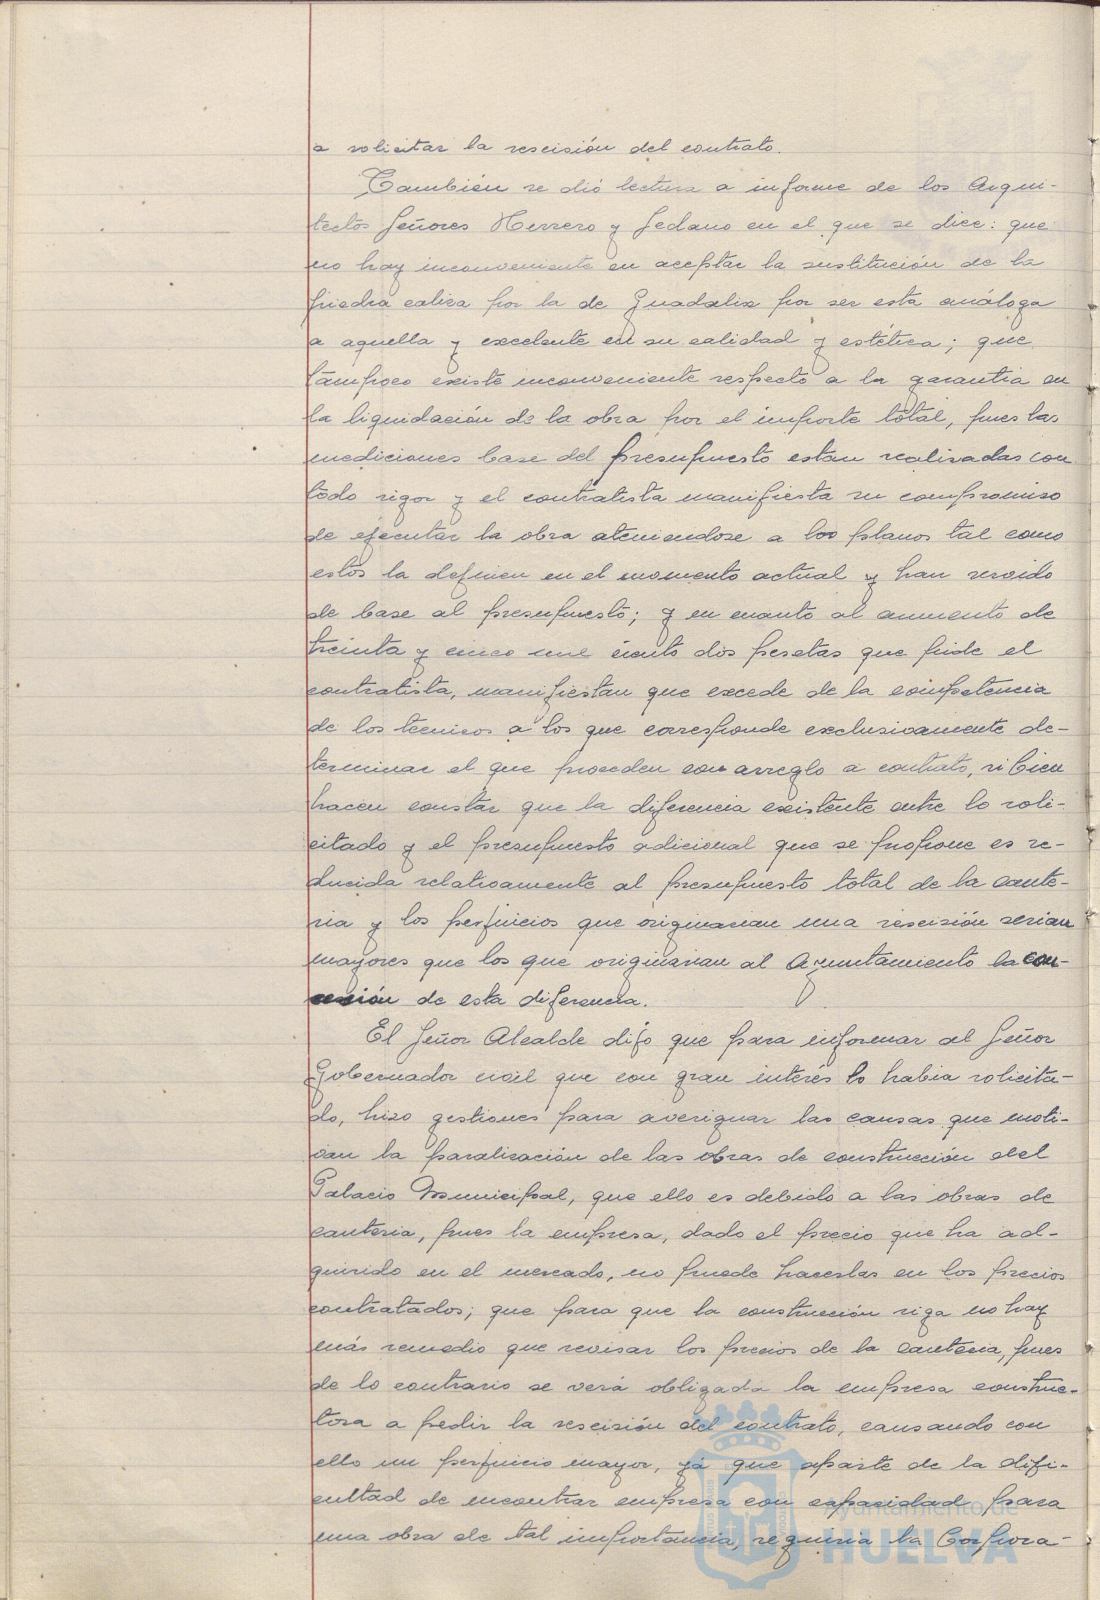 a solicitar la rescisión del contrato.
También se dió lectura a informe de los Arqui-
tectos Señores Herrero y Sedano en el que se dice: que
no hay inconveniente en aceptar la sustitución de la
piedra caliza por la de Guadalix por ser esta análoga
a aquella y excelente en su calidad y estética; que
tampoco existe inconveniente respecto a la garantia en
la liquidación de la obra por el importe total, pues las
mediciones base del presupuesto estan realizadas con
todo rigor y el contratista manifiesta su compromiso
de ejecutar la obra ateniendose a los planos tal como
estos la definen en el momento actual y han servido
de base al presupuesto; y en cuanto al aumento de
treinta y cinco mil ciento dos pesetas que pide el
contratista, manifiestan que excede de la competencia
de los tecnicos a los que corresponde exclusivamente de-
terminar el que proceden con arreglo a contrato, si bien
hacen constar que la diferencia existente entre lo soli-
citado y el presupuesto adicional que se propone es re-
ducida relativamente al presupuesto total de la cante-
ria y los perjuicios que originarian una rescisión serian
mayores que los que originarian al Ayuntamiento la con-
cesión de esta diferencia.
El Señor Alcalde dijo que para informar al Señor
Gobernador civil que con gran interés lo habia solicita-
do, hizo gestiones para averiguar las causas que moti-
van la paralización de las obras de construcción del
Palacio Municipal, que ello es debido a las obras de
canteria, pues la empresa, dado el precio que ha ad-
quirido en el mercado, no puede hacerlas en los precios
contratados; que para que la construcción siga no hay
más remedio que revisar los precios de la canteria, pues
de lo contrario se verá obligada la empresa construc-
tora a pedir la rescisión del contrato, causando con
ello un perjuicio mayor, yá que aparte de la difi-
cultad de encontrar empresa con capacidad para
una obra de tal importancia, seguiria la Corpora-
Ayuntamiento de
HUELVA